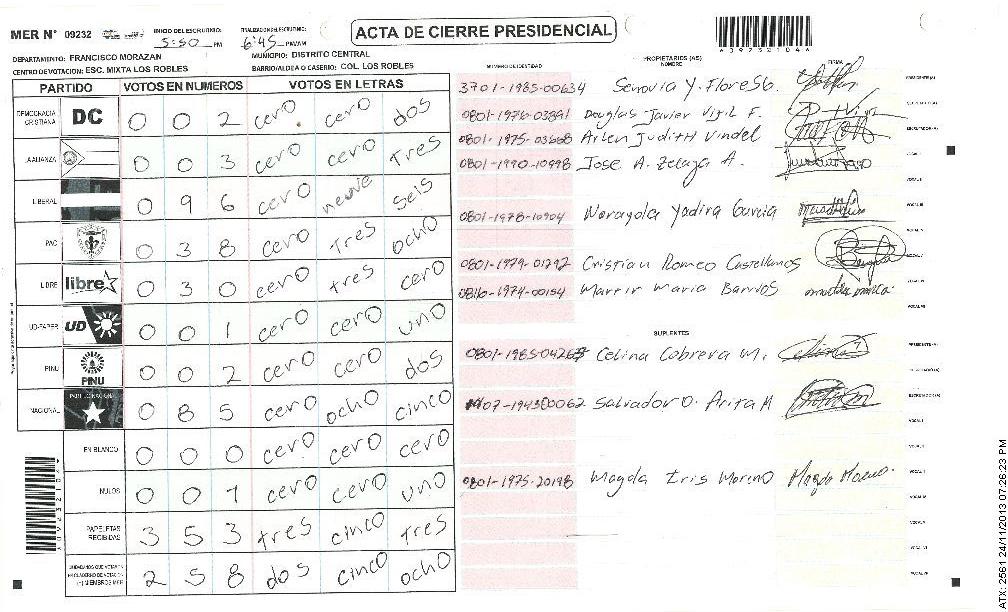 ACTA DE CIERRE PRESIDENCIAL
MER N° 09232
INICIO DEL ESCRUTINIO: 5:50 PM
FINALIZACION DEL ESCRUTINIO: 6:45 PM/AM
DEPARTAMENTO: FRANCISCO MORAZAN
MUNICIPIO: DISTRITO CENTRAL
CENTRO DE VOTACION: ESC. MIXTA LOS ROBLES
BARRIO/ALDEA O CASERIO: COL. LOS ROBLES
PARTIDO VOTOS EN NUMEROS VOTOS EN LETRAS
DEMOCRACIA CRISTIANA DC 0 0 2 cero cero dos
ALIANZA 0 0 3 cero cero Tres
LIBERAL 0 9 6 cero neuve seis
PAC 0 3 8 cero Tres ocho
LIBRE libre 0 3 0 cero tres cero
UD-FAPER UD 0 0 1 cero cero uno
PINU PINU 0 0 2 cero cero dos
NACIONAL PARTIDO NACIONAL 0 8 5 cero ocho cinco
EN BLANCO 0 0 0 cero cero cero
NULOS 0 0 1 cero cero uno
PAPELETAS RECIBIDAS 3 5 3 tres cinco Tres
CIUDADANOS QUE VOTARON EN CUADERNO DE VOTACION (+) MIEMBROS MER 2 5 8 dos cinco ocho
PROPIETARIOS (AS)
NUMERO DE IDENTIDAD NOMBRE FIRMA
3701-1985-00634 Senovia Y. Flores G. PRESIDENTE(A)
0801-1976-03891 Douglas Javier Vijil F.
0801-1975-03668 Arlen Judith Vindel SECRETARIO(A)
0801-1990-10998 Jose A. Zelaya A. VOCAL I
VOCAL II
0801-1978-10904 Yadira Garcia VOCAL III
0801-1979-01792 Cristian Romeo Castellanos VOCAL V
0816-1974-00154 Maria Barrios
SUPLENTES
0801-1985-04267 Celina Cobrera M. PRESIDENTE(A)
07-1943 00062 Salvador O. Arita M SECRETARIO(A)
VOCAL I
VOCAL II
0801-1975-20198 Magda Iris Moreno Magda Moreno
ATX: 2561 24/11/2013 07:26:23 PM